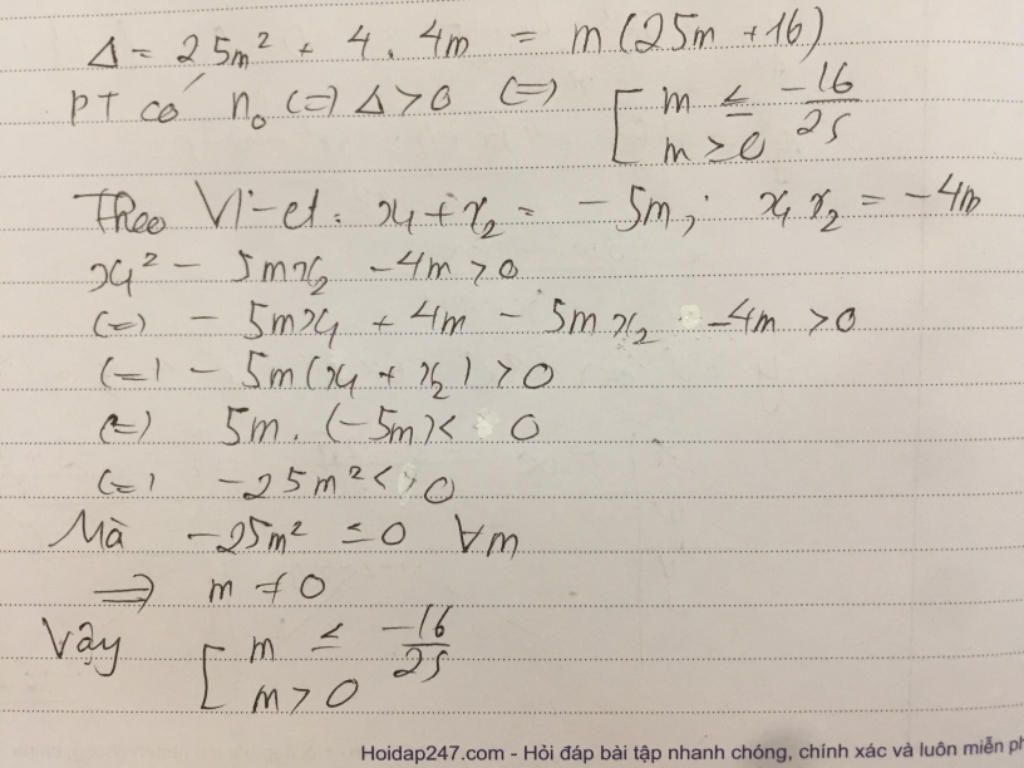 Δ = 25m² + 4. 4m = m(25m +16)
PT có n₀ (=) Δ > 0 (=) [ m ≤ -16/25
m ≥ 0
Theo Vi-et: x₁ + x₂ = - 5m; x₁ x₂ = -4m
x₁² - 5mx₂ -4m > 0
(=) - 5mx₁ + 4m - 5mx₂ -4m > 0
(=) - 5m(x₁ + x₂) > 0
(=) 5m. (-5m) < 0
(=) -25m² < 0
Mà -25m² ≤ 0 ∀m
=> m ≠ 0
Vậy [ m ≤ -16/25
m > 0
Hoidap247.com - Hỏi đáp bài tập nhanh chóng, chính xác và luôn miễn ph